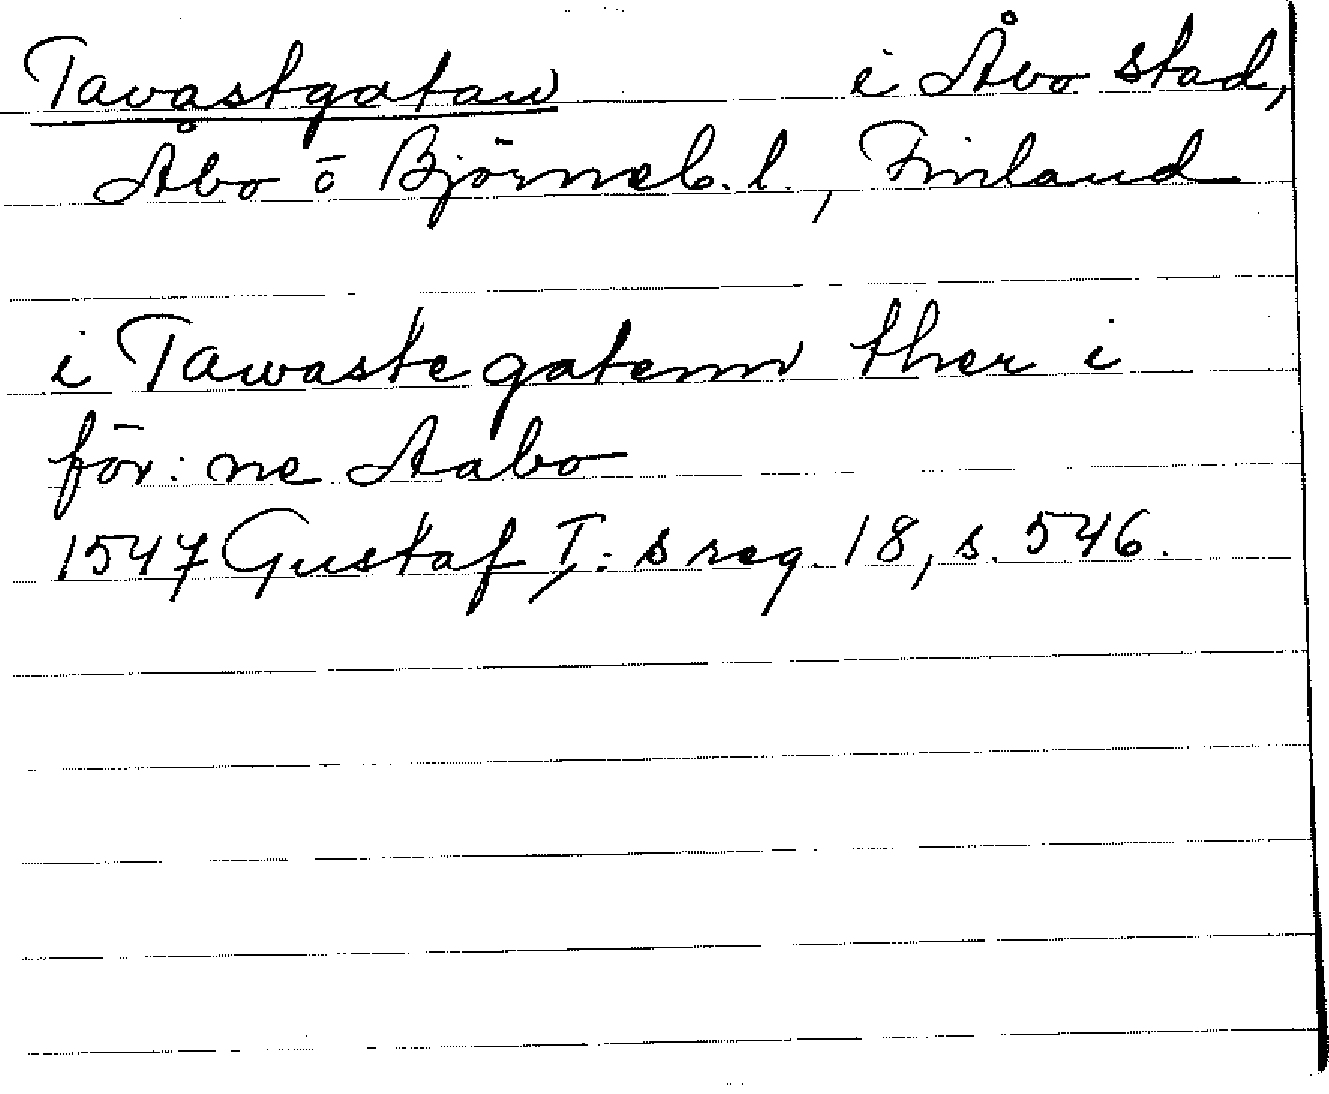 Tavastgatan i Åbo stad,
Åbo o Björneb. l., Finland
i Tawastegatenn ther i
för:ne Aabo
1547 Gustaf I:s reg. 18, s. 546.